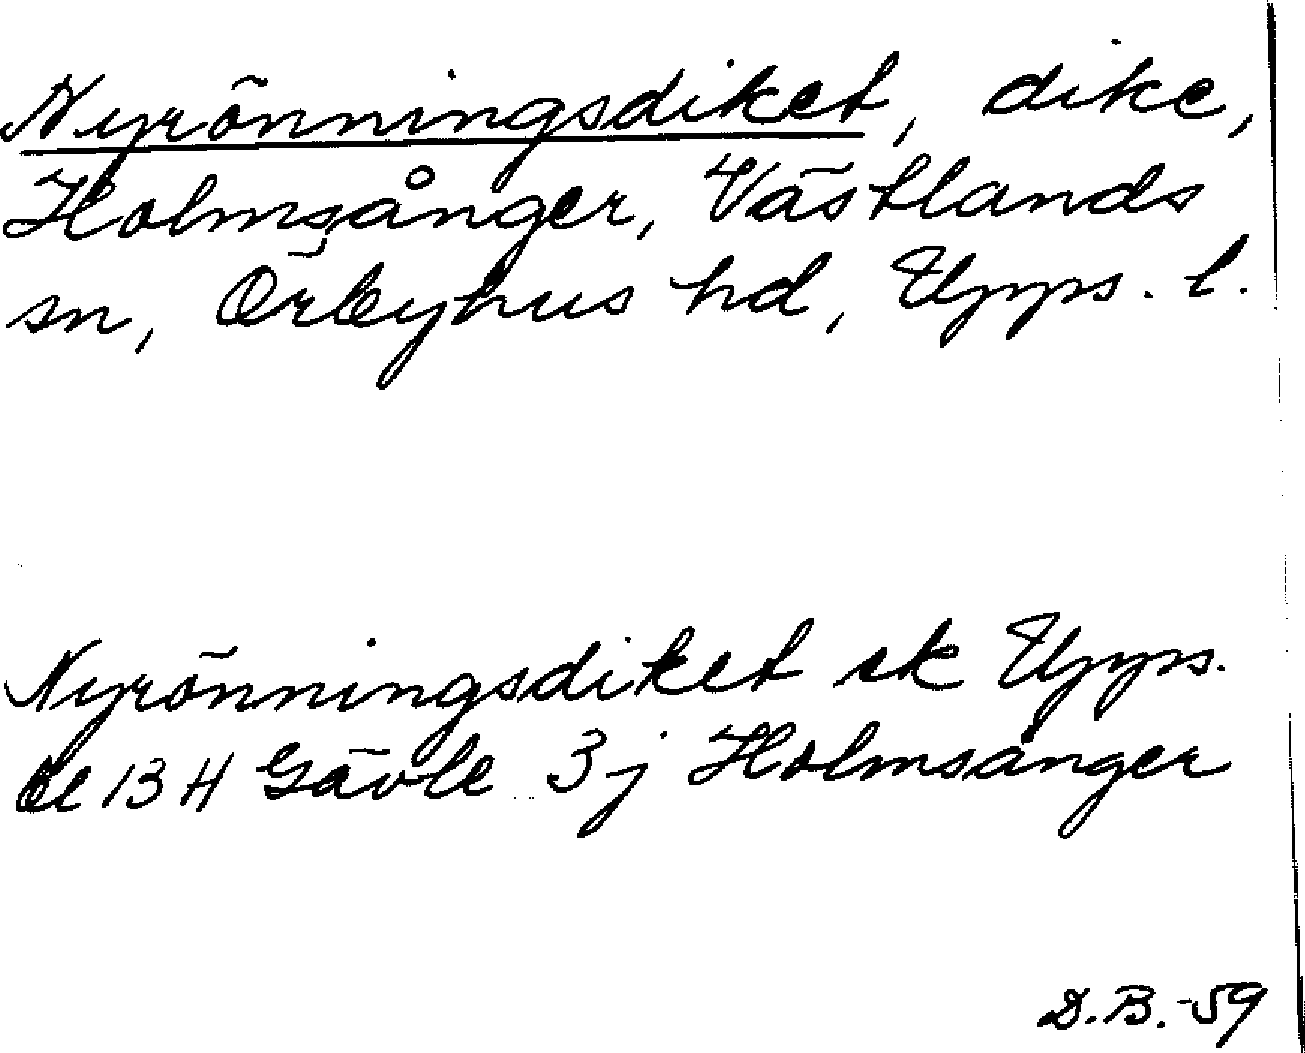 Nyrönningsdiket, dike,
Holmsånger, Västlands
sn, Örbyhus hd, Upps. l.
Nyrönningsdiket ek Upps.
bl 13 H Gävle 3 j Holmsånger
D.B. -59